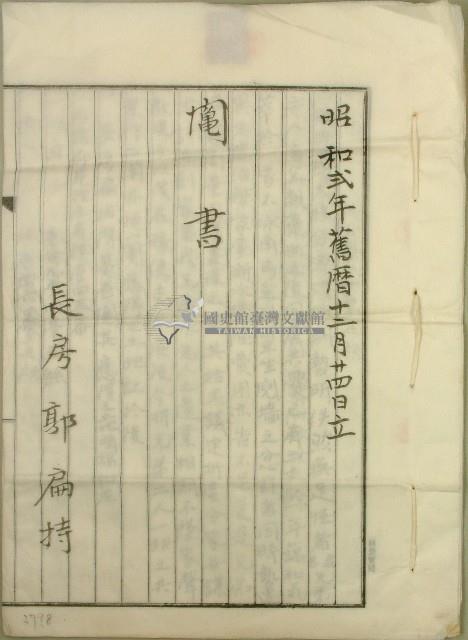 昭和弍年舊曆十二月廿四日立
鬮書
長房郭扁持
國史館臺灣文獻館
TAIWAN HISTORICA
2798